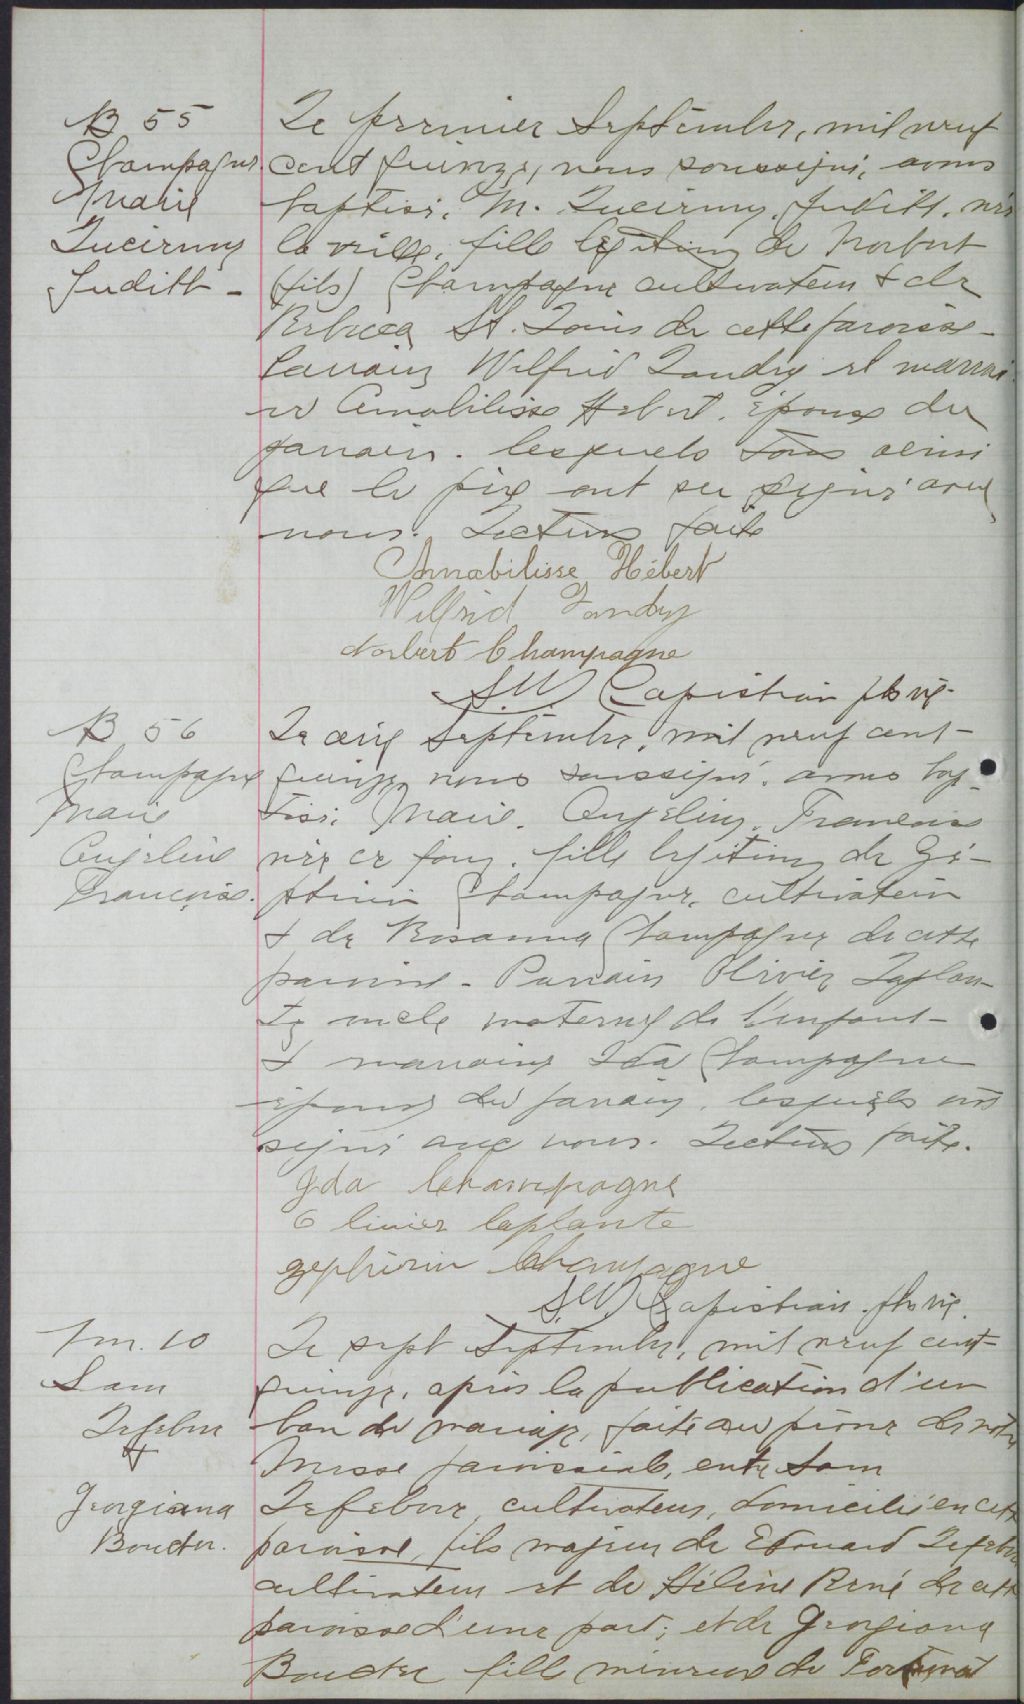 B 55
Champagne
Marie
Lucienne
Judith -
Le premier Septembre, mil neuf
cent quinze, nous soussigné, avons
baptisé, M. Lucienne, Judith, née
la veille, fille légitime de Norbert
(fils) Champagne cultivateur & de
Rebecca St. Louis de cette paroisse -
Parrain Wilfrid Landry et marrai-
ne Amabilisse Hebert, épouse du
parrain. lesquels tous ainsi
que le père ont su signer avec
nous. Lecture faite
Amabilisse Hébert
Wilfrid Landry
Norbert Champagne
Capistran ptre
B 56
Champagne
Marie
Angeline
Françoise.
Le onze Septembre, mil neuf cent-
quinze, nous soussigné, avons bap-
tisé, Marie, Angeline, Francoise
née ce jour, fille légitime de Zé-
phirin Champagne, cultivateur
& de Rosanna Champagne de cette
paroisse - Parrain Olivier Laplan-
te oncle maternel de l'enfant -
& marraine Ida Champagne
épouse du parrain, lesquels ont
signé avec nous. Lecture faite.
Ida Champagne
Olivier laplante
zephirin Champagne
Capistran ptre
M. 10
Sam
Lefebvre
&
Georgianna
Boucher.
Le sept Septembre, mil neuf cent-
quinze, après la publication d'un
ban de mariage, faite au prône de notre
Messe paroissiale, entre Sam
Lefebvre, cultivateur, domicilié en cette
paroisse, fils majeur de Edouard Lefebvre
cultivateur et de Hélène René de cette
paroisse d'une part; et de Georgiana
Boucher fille mineure de Fortunat